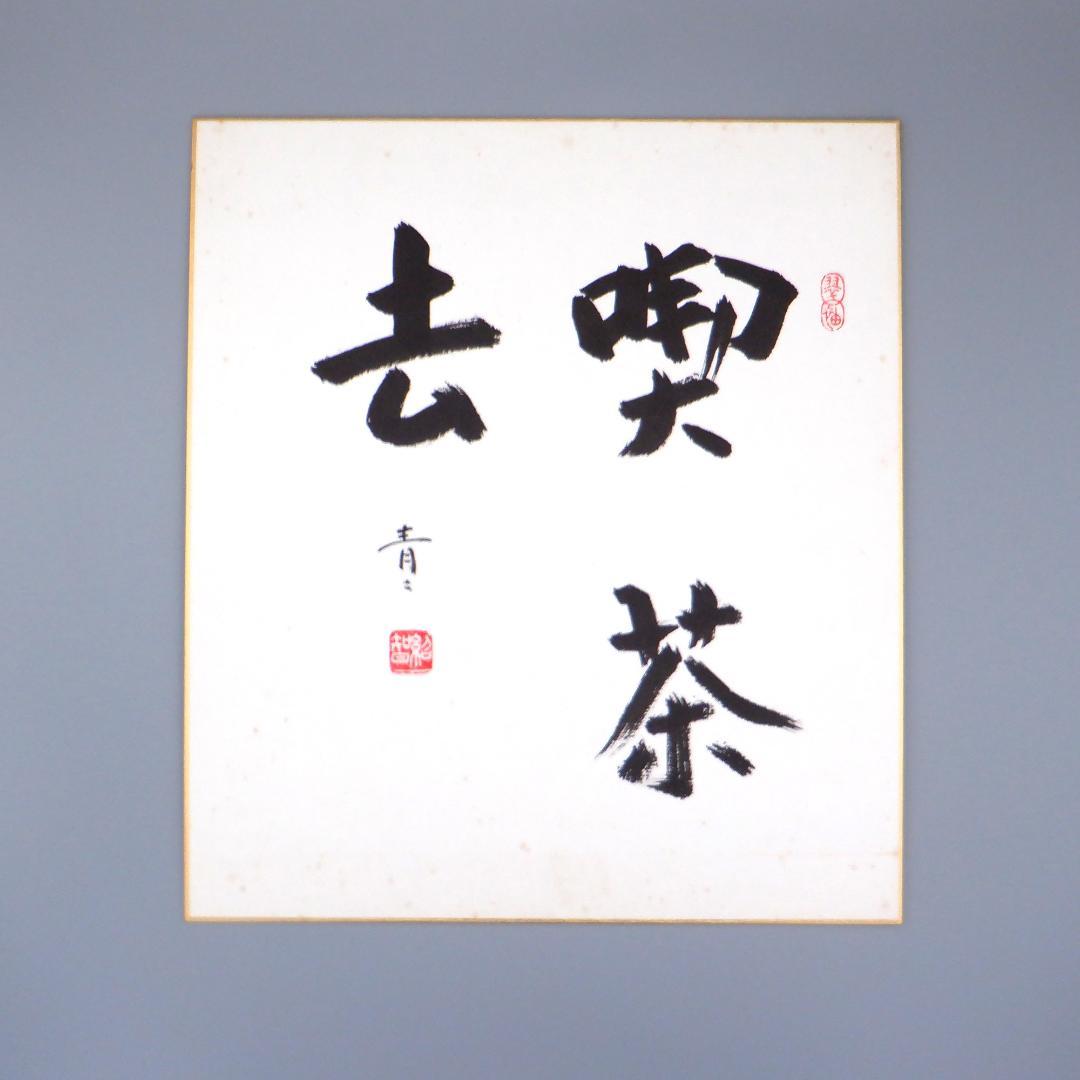 喫茶
去
青々